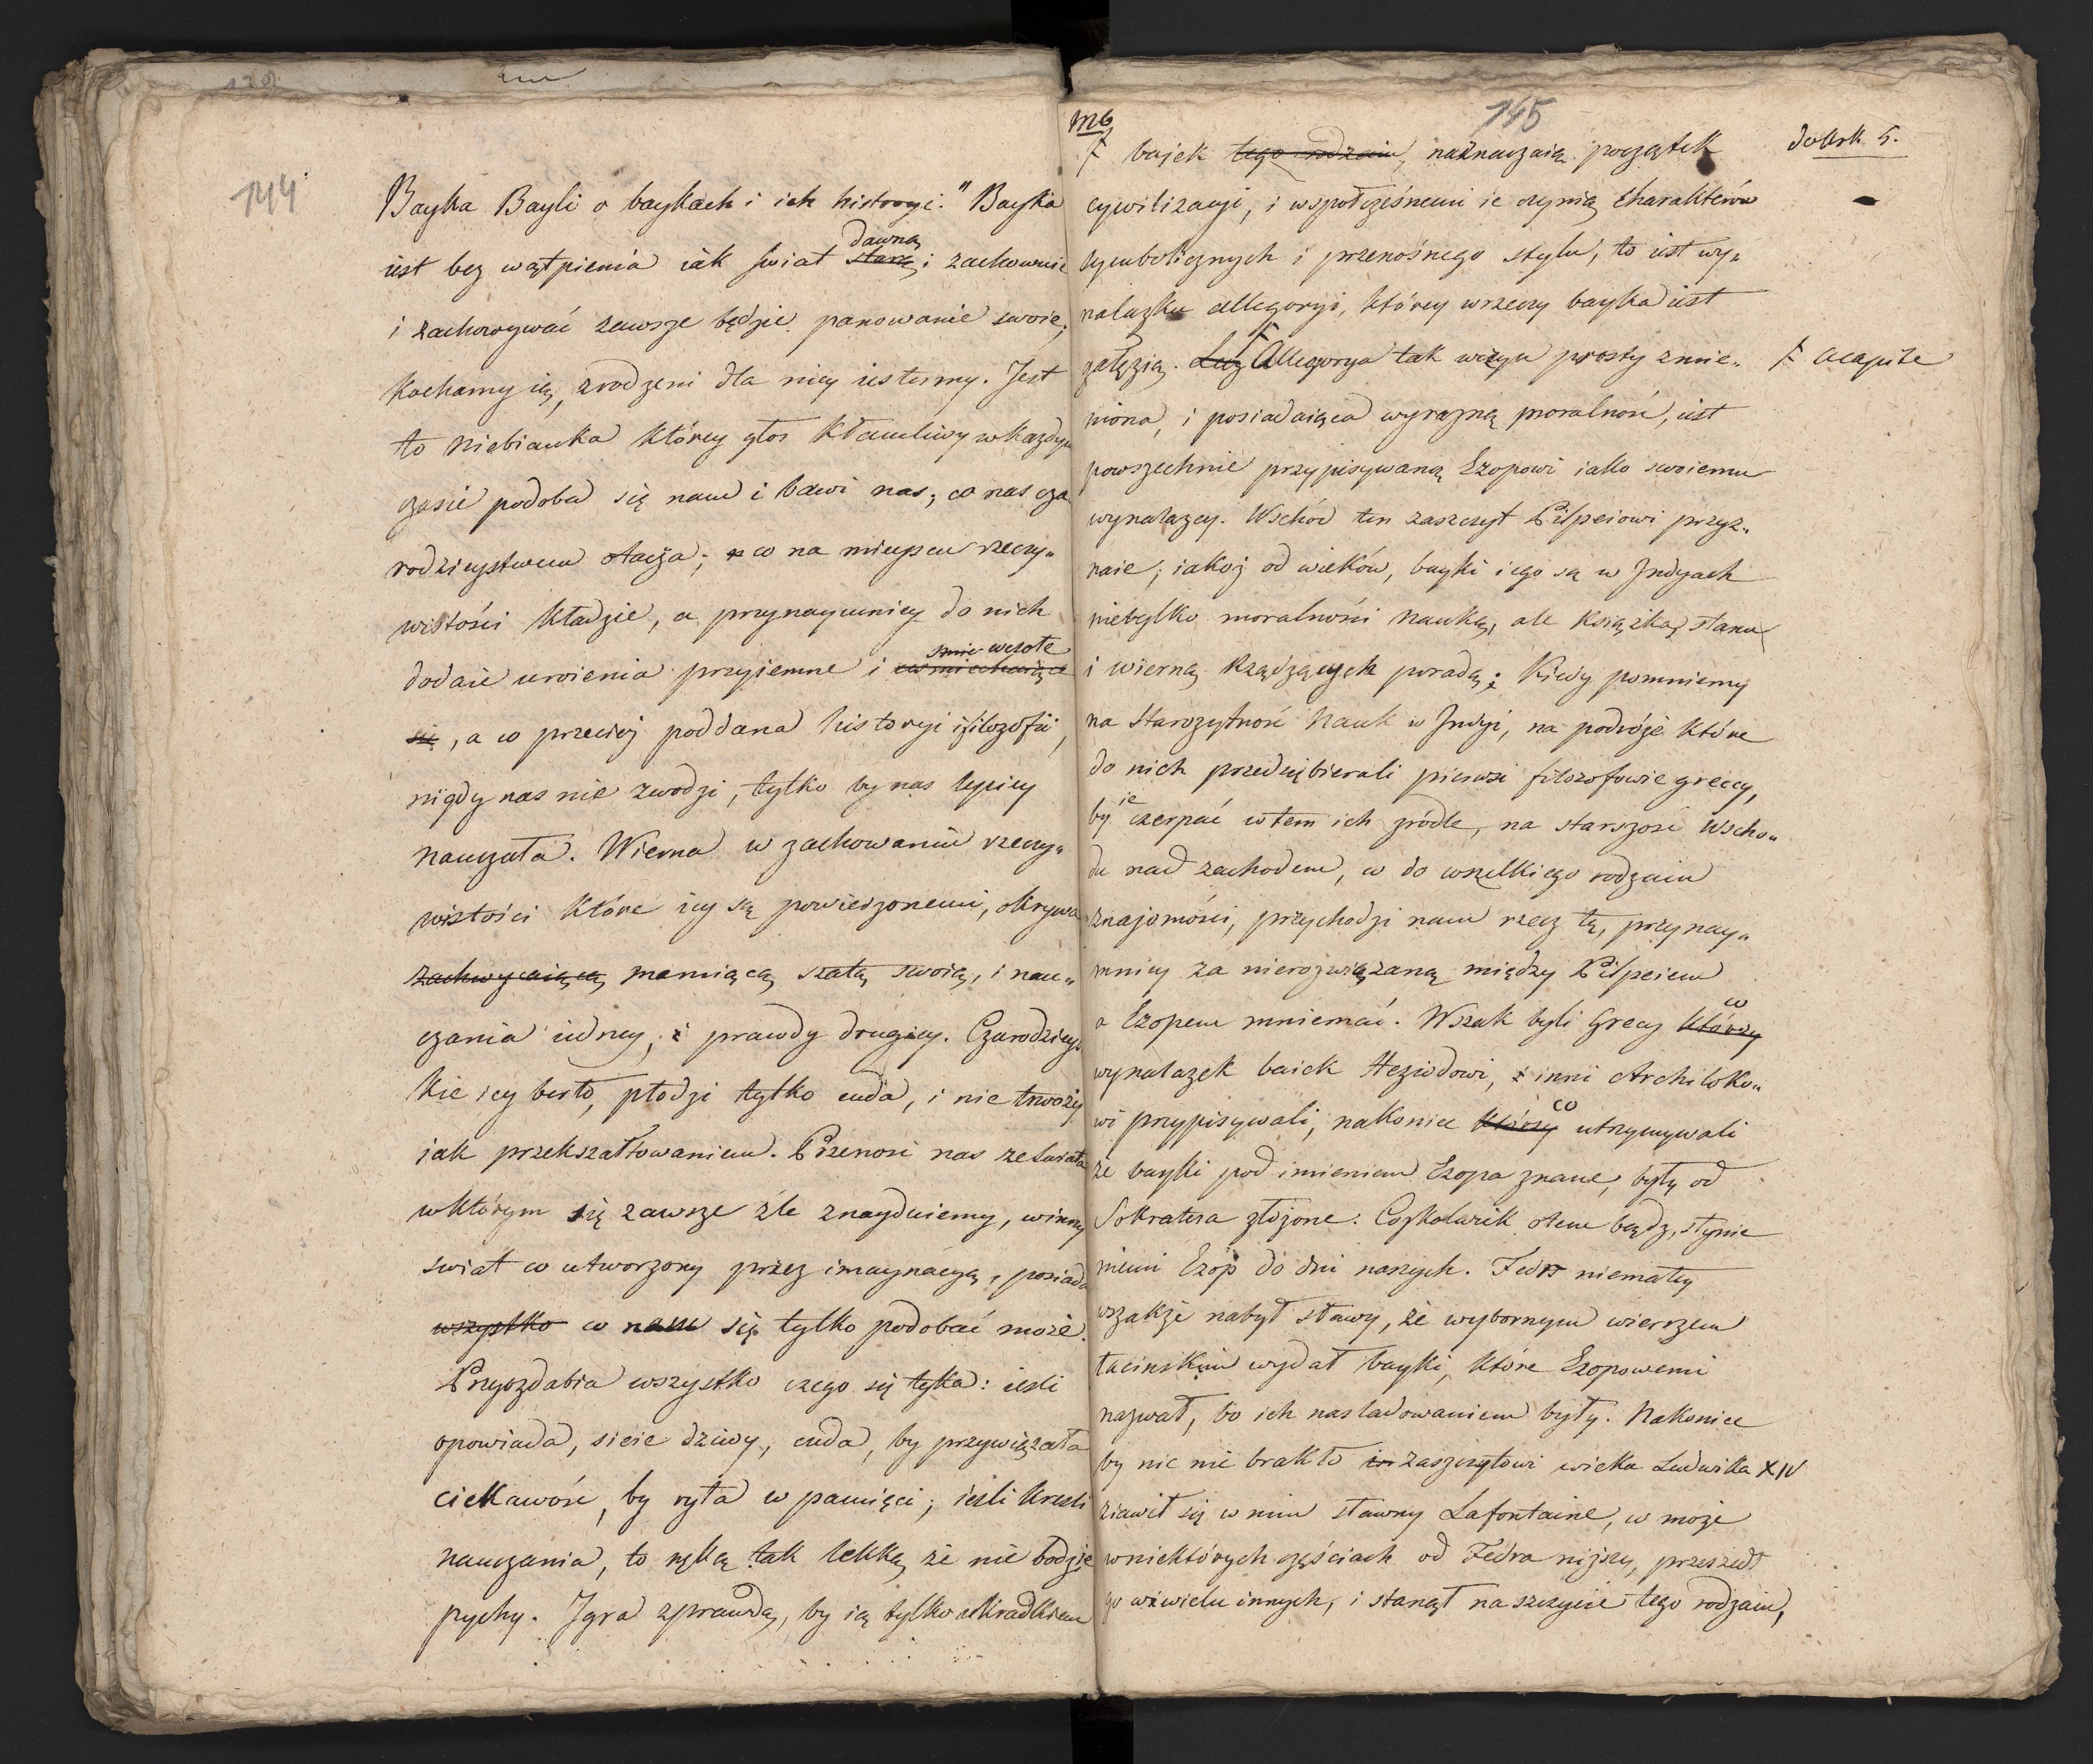 144
Bayka Bayli o baykach i ich historyi." Bayka
iest bez wątpienia iak świat starą dawną i zachowuie
i zachowywać zawsze będzie panowanie swoie;
kochamy ią, zrodzeni dla niey iestesmy. Jest
to Niebianka którey głos kłamliwy w każdym
czasie podoba się nam i bawi nas; co nas cza
rodzieystwem otacza; co na mieyscu rzeczy„
wistości kładzie, a przynaymniey do nich
dodaie uroienia przyiemne i usmiechaiące wesołe
się, a co przeciej poddana historyi i filozofii,
nigdy nas nie zwodzi, tylko by nas lepiey
nauczała. Wierna w zachowaniu rzeczy„
wistości które iey są powierzonemi, okrywa
zachwycaiącą mamiącą szatą swoią, i nau„
czania iedney, i prawdy drugiey. Czarodzieys
kie iey berło, płodzi tylko cuda, i nie tworzy
iak przekształtowaniem. Przenosi nas ze świata
w którym się zawsze źle znayduiemy, w inny
swiat co utworzony przez imaynacyą, posiada
wszystko co nam się tylko podobać może.
Przyozdabia wszystko czego się tyka: ieśli
opowiada, sieie dziwy, cuda, by przywiązała
ciekawość, by ryła w pamięci; ieśli kreśli
nauczania, to ręką tak lekką że nie bodzie
pychy. Igra z prawdą, by ią tylko ukradkiem
M6
145
do Ark 5.
bajek tego rodzaiu, naznaczaią początek
cywilizacyi, i współcześnemi ie czynią charakterów
symbolicznych i przenośnego stylu, to iest wy„
nalazku allegoryi, którey wrzeczy bayka iest
gałęzią. Lecz Allegorya tak w czyn prosty zmie„
a capite
niona, i posiadaiąca wyraźną moralność, iest
powszechnie przypisywaną Ezopowi iako swoiemu
wynalazcy. Wschód ten zaszczyt Pilpeiowi przyz„
naie; iakoż od wieków, bayki iego są w Indyach
nietylko moralności nauką, ale książką stanu
i wierną rządzących poradą; Kiedy pomniemy
na starożytność nauk w Indyi, na podróże które
do nich przedsiębierali pierwsi filozofowie greccy,
by ie czerpać w tem ich źródle, na starszość wscho„
du nad zachodem, co do wszelkiego rodzaiu
znajomości, przychodzi nam rzecz tę, przynay„
mniey za nierozwiązaną między Pilpeiem
a Ezopem mniemać. Wszak byli Grecy którzy co
wynalazek baiek Heziodowi, i inni Archiloko„
wi przypisywali, nakoniec którzy co utrzymywali
że bayki pod imieniem Ezopa znane, były od
Sokratesa złożone. Cożkolwiek o tem bądź, słynie
niemi Ezop do dni naszych. Fedr niemałey
wszakże nabył sławy, że wybornym wierszem
łacińskim wydał bayki, które Ezopowemi
nazwał, bo ich nasladowaniem były. Nakoniec
by nic nie brakło zaszczytowi wieku Ludwika XIV
ziawił się w nim sławny Lafontaine, co może
w niektórych częściach od Fedra niższy, przeszedł
go w wielu innych, i stanął na szczycie tego rodzaiu,